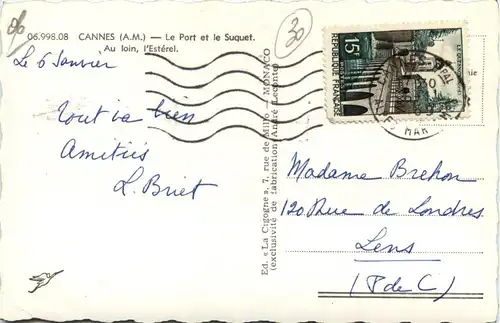 06.998.08 CANNES (A.M.) — Le Port et le Suquet.
Au loin, l'Estérel.
Le 6 Janvier
Tout va bien
Amitiés
L. Briet
Ed. « La Cigogne », 7, rue de Millo — MONACO
(exclusivité de fabrication André Leconte)
30
15F
REPUBLIQUE FRANÇAISE
Madame Brehon
120 Rue de Londres
Lens
(P de C)